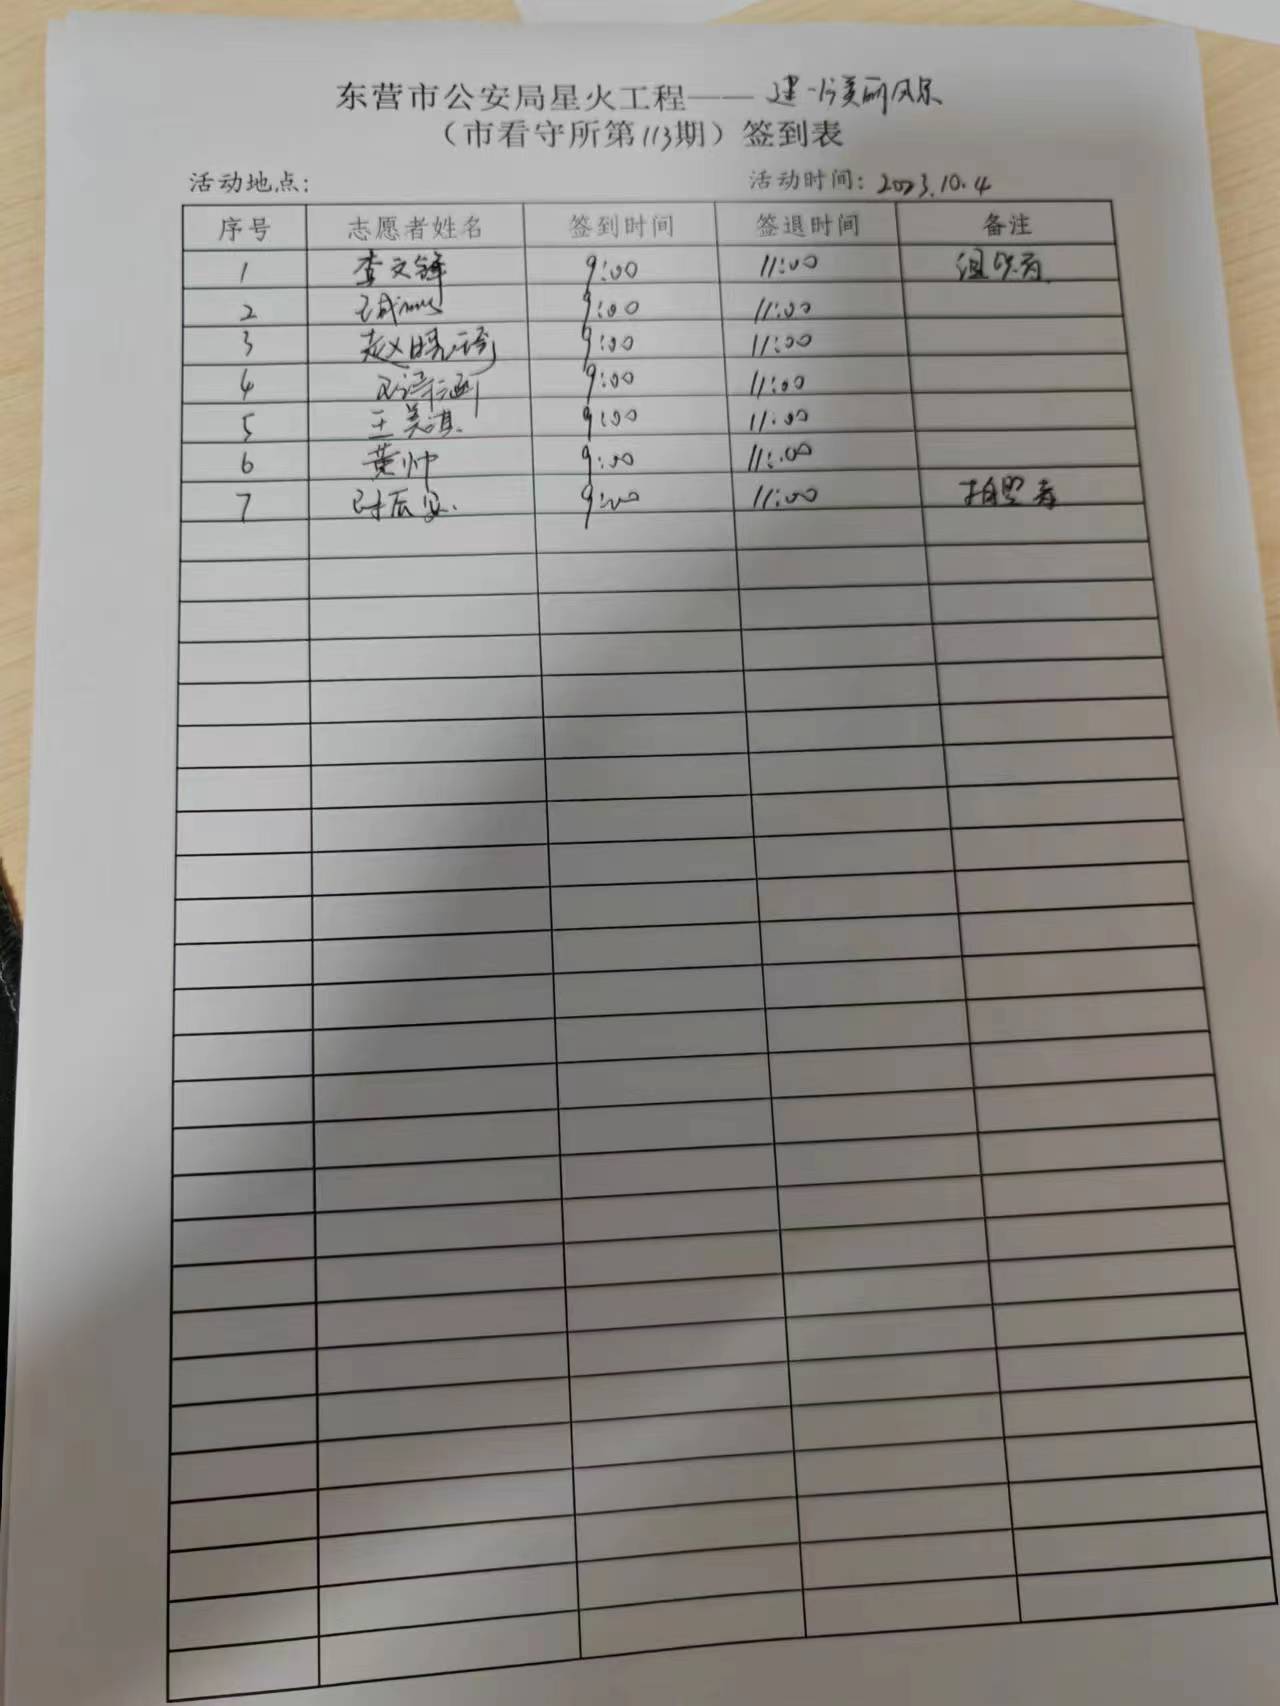 东营市公安局星火工程——建一份美丽风景
（市看守所第113期）签到表
活动地点： 活动时间：2023.10.4
序号 志愿者姓名 签到时间 签退时间 备注
1 李文锋 9:00 11:00 组织者
2 9:00 11:00
3 赵晓琦 9:00 11:00
4 9:00 11:00
5 王美淇 9:00 11:00
6 黄帅 9:00 11:00
7 9:00 11:00 拍照者